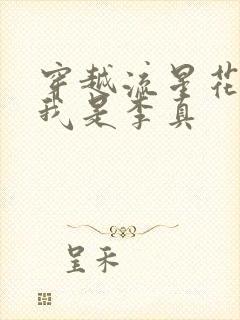 穿越流星花
我是李真
呈禾